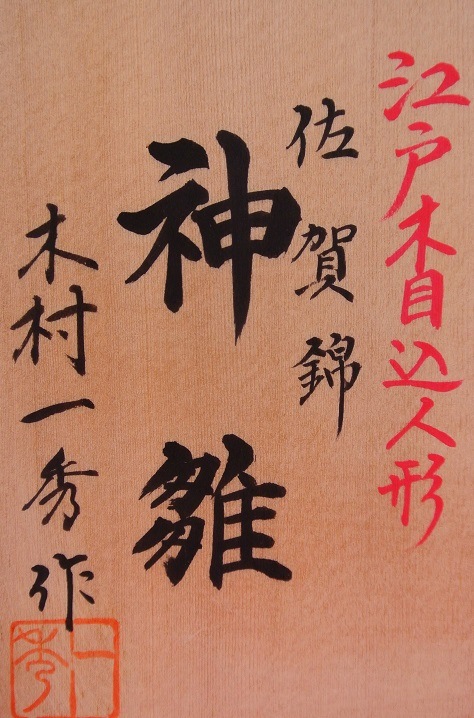 江戸木目込人形
佐賀錦
神雛
木村一秀作
一秀